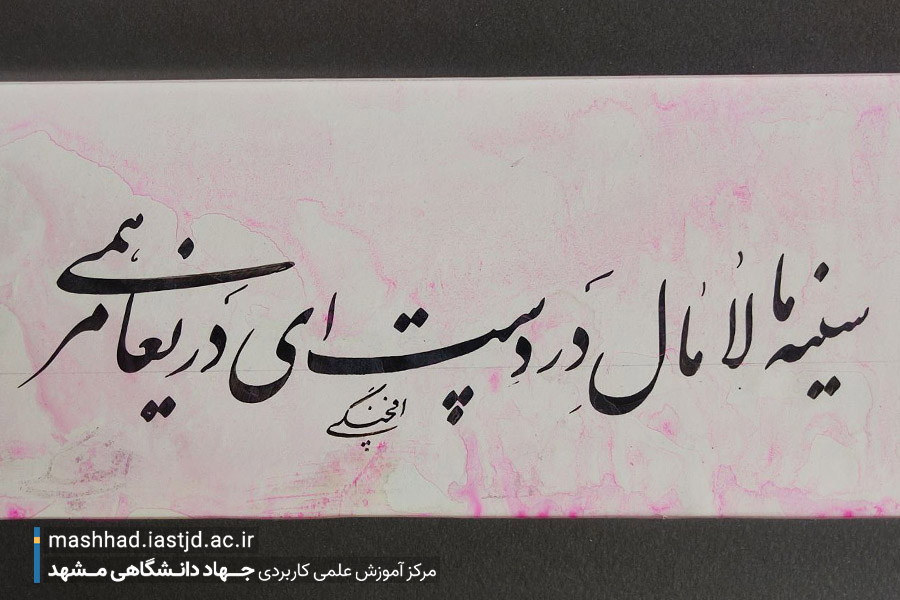 سینه مالامال دردست ای دریغا مرهمی
افچنگی
mashhad.iastjd.ac.ir
مرکز آموزش علمی کاربردی جهاد دانشگاهی مشهد